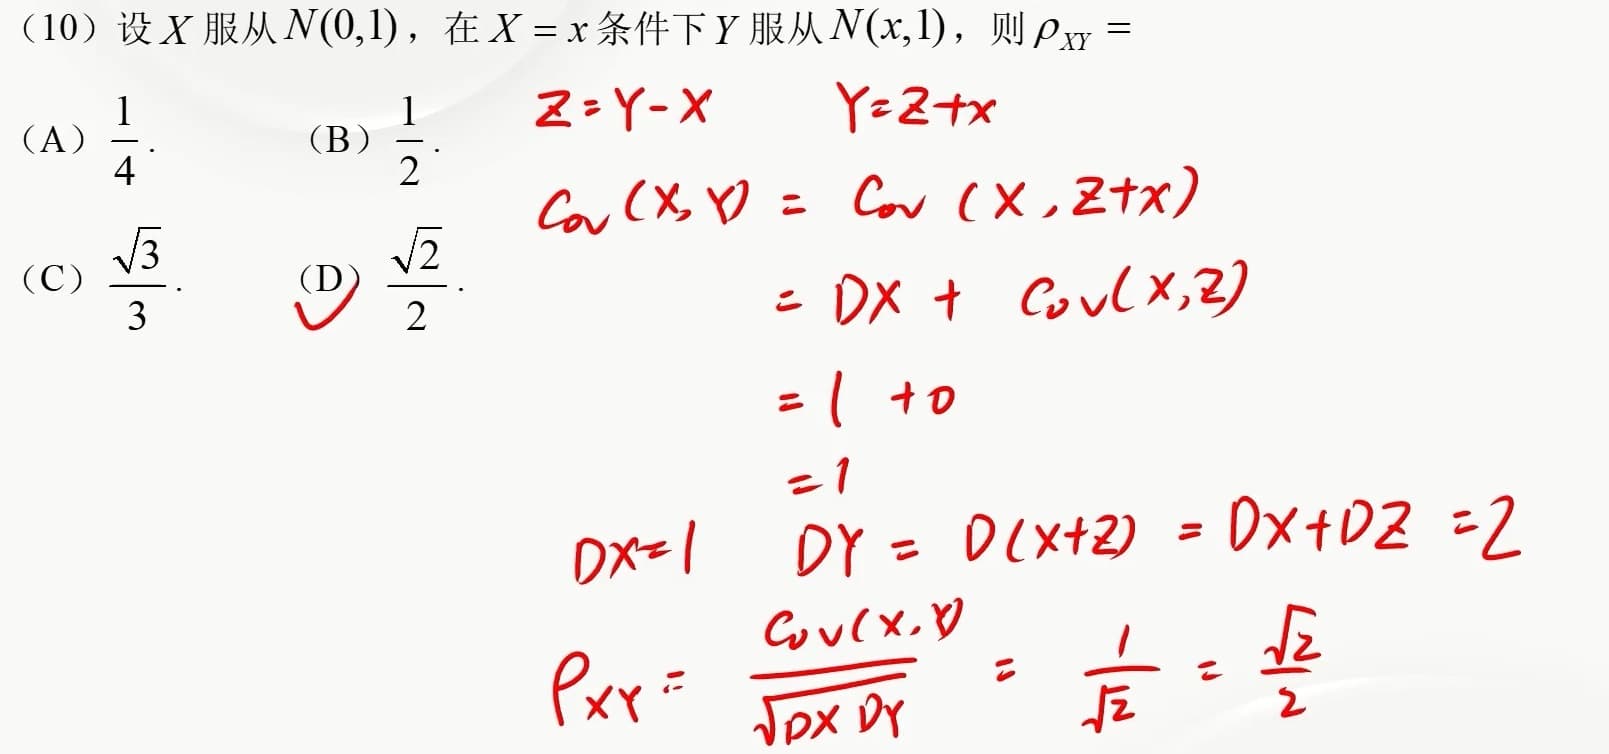 （10）设 X 服从 N(0,1)，在 X = x 条件下 Y 服从 N(x,1)，则 ρ_XY =
（A）1/4． （B）1/2．
（C）√3/3． （D）√2/2．
Z = Y - X Y = Z + x
Cov (X, Y) = Cov (X, Z+x)
= DX + Cov(X, Z)
= 1 + 0
= 1
DX = 1 DY = D(X+Z) = DX + DZ = 2
ρ_XY = Cov(X, Y) / √(DX DY) = 1/√2 = √2/2